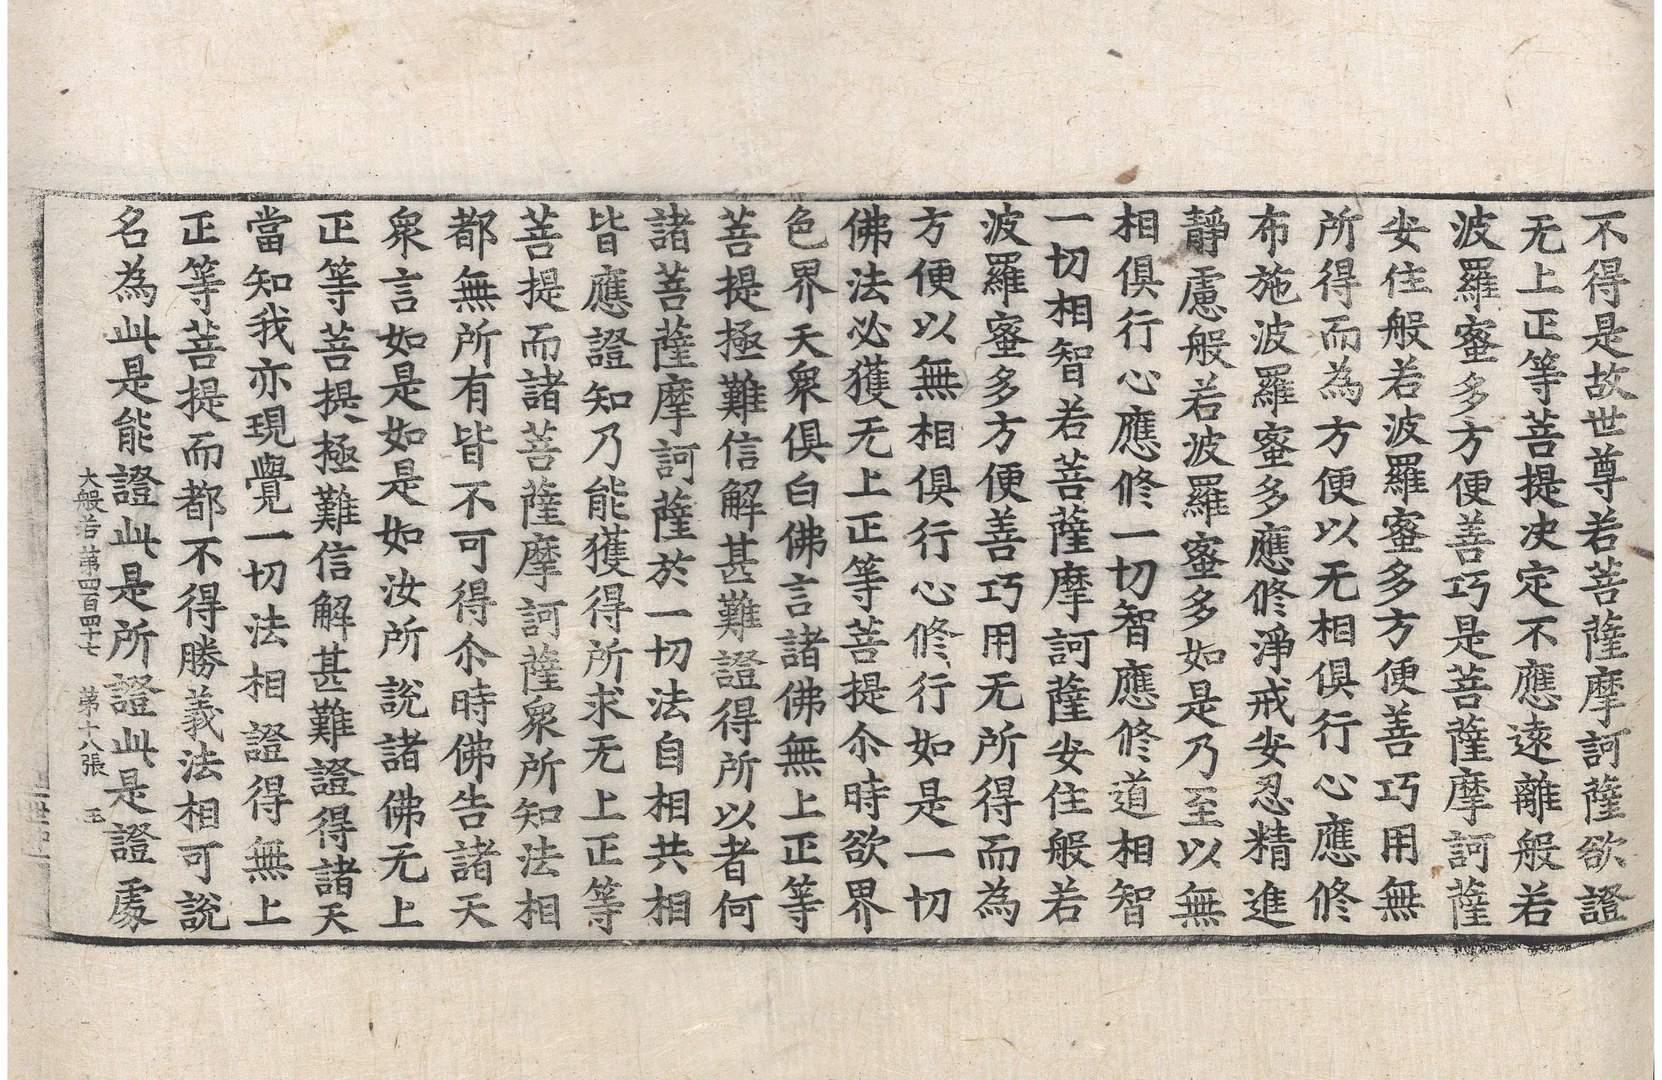 不得是故世尊若菩薩摩訶薩欲證
无上正等菩提决定不應遠離般若
波羅蜜多方便善巧是菩薩摩訶薩
安住般若波羅蜜多方便善巧用無
所得而為方便以无相俱行心應修
布施波羅蜜多應修淨戒安忍精進
靜慮般若波羅蜜多如是乃至以無
相俱行心應修一切智應修道相智
一切相智若菩薩摩訶薩安住般若
波羅蜜多方便善巧用无所得而為
方便以無相俱行心修行如是一切
佛法必獲无上正等菩提尒時欲界
色界天衆俱白佛言諸佛無上正等
菩提極難信解甚難證得所以者何
諸菩薩摩訶薩於一切法自相共相
皆應證知乃能獲得所求无上正等
菩提而諸菩薩摩訶薩衆所知法相
都無所有皆不可得尒時佛告諸天
衆言如是如是如汝所說諸佛无上
正等菩提極難信解甚難證得諸天
當知我亦現覺一切法相證得無上
正等菩提而都不得勝義法相可說
名為此是能證此是所證此是證處
大般若第四百四十七 第十八張